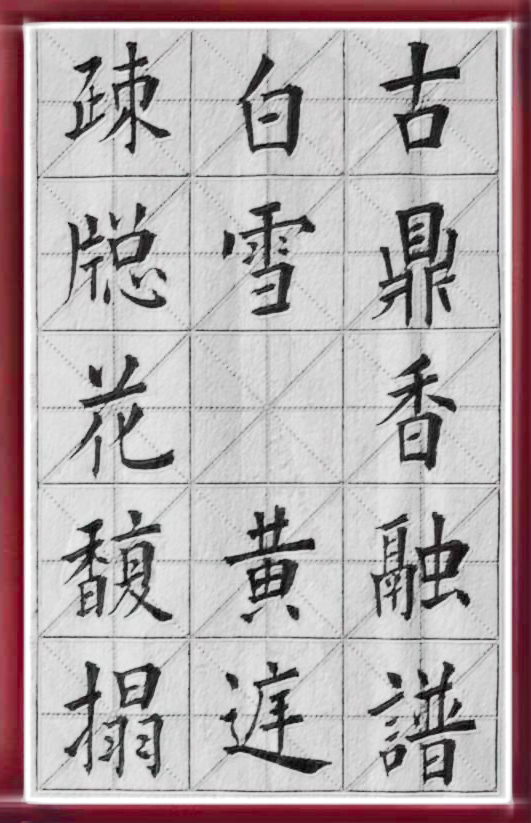 古鼎香融譜
白雪 黄庭
疎牕花馥搨